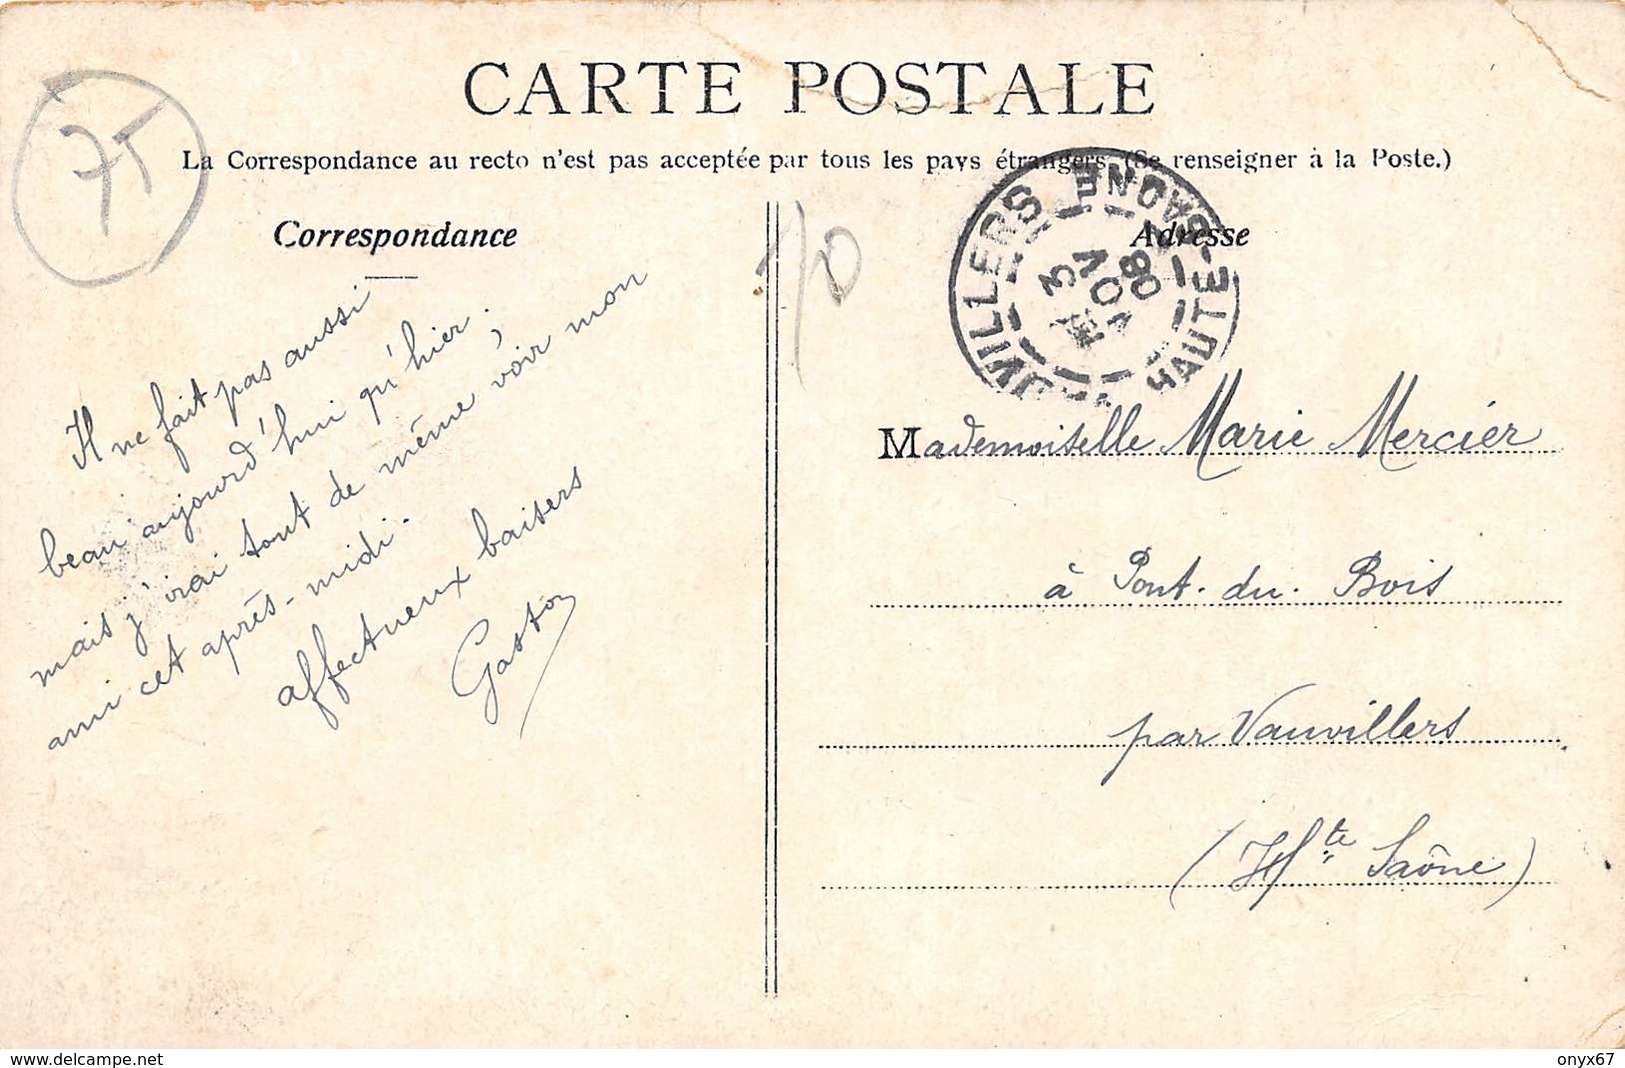 CARTE POSTALE
La Correspondance au recto n'est pas acceptée par tous les pays étrangers. (Se renseigner à la Poste.)
75
Correspondance
Adresse
70
VILLERS
HAUTE-SAONE
3
08
Il ne fait pas aussi
beau aujourd'hui qu'hier;
mais j'irai tout de même voir mon
ami cet après-midi.
affectueux baisers
Gaston
Mademoiselle Marie Mercier
à Pont-du-Bois
par Vauvillers
(Hte Saône)
www.delcampe.net
onyx67